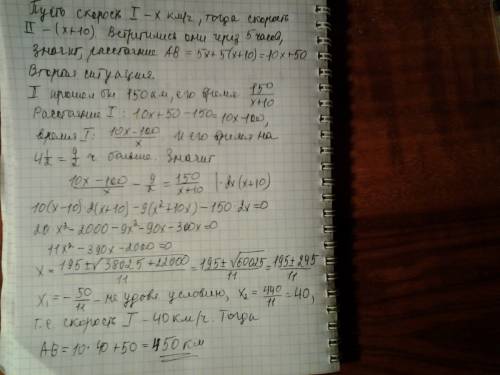 Пусть скорость I - x км/ч, тогда скорость
II - (x+10). Встретились они через 5 часов,
значит, расстояние AB = 5x + 5(x+10) = 10x + 50
Вторая ситуация.
I прошел бы 150 км, его время 150/(x+10)
Расстояние I: 10x + 50 - 150 = 10x - 100,
время I: (10x - 100)/x и его время на
4 1/2 = 9/2 ч больше. Значит
(10x - 100)/x - 9/2 = 150/(x+10) | · 2x(x+10)
10(x-10) · 2(x+10) - 9(x² + 10x) - 150 · 2x = 0
20x² - 2000 - 9x² - 90x - 300x = 0
11x² - 390x - 2000 = 0
x = (195 ± √(38025 + 22000))/11 = (195 ± √60025)/11 = (195 ± 245)/11
x₁ = - 50/11 - не удовл условию, x₂ = 440/11 = 40,
т.е. скорость I - 40 км/ч. Тогда
AB = 10 · 40 + 50 = 450 км